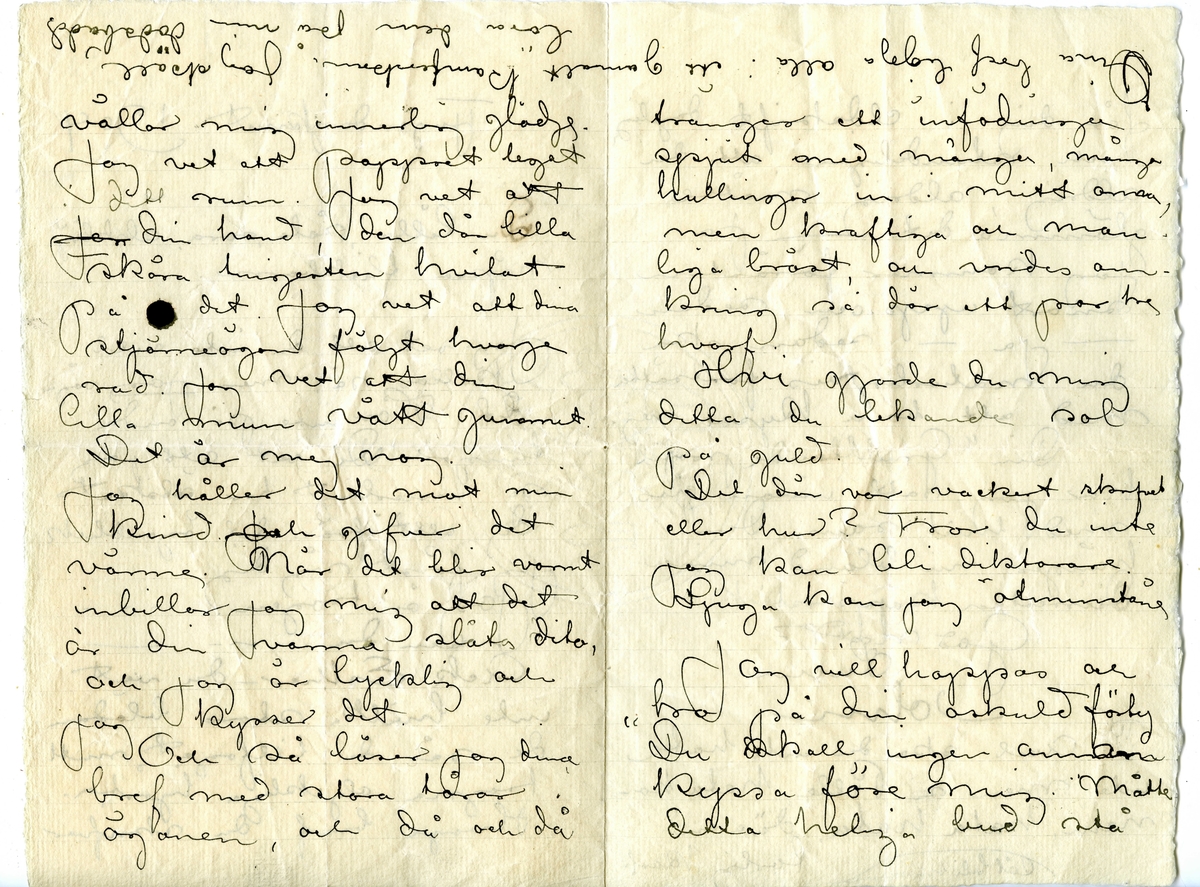 vållar mig innerlig glädje.
Jag vet att pappret legat
i ditt rum. Jag vet att
jag din hand, den där lilla
skära tingesten hvilat
på det. Jag vet att dina
stjärneögon följt hvarje
rad. Jag vet att din
lilla mun vått gummit.
Det är mej nog.
Jag håller det mot min
kind och gifver det
värme. Når det blir varmt
inbillar jag mig att det
är din varma släta dito,
och jag är lycklig och
jag kysser det.
Och så läser jag dina
bref med stora tårar i
ögonen, och då och då
tränger ett infödinges
spjut med många, många
hullingar in i mitt ömma,
men kraftiga och man-
liga bröst, och vrides om-
kring så där ett par tre
hvarf.
Hvi gjorde du mig
detta du lekande sol
på guld.
Det där var vackert skrifvet
eller hur? Tror du inte
jag kan bli diktarare.
Ljuga kan jag åtminstone
Jag vill hoppas och
tro på din oskuld förty
"Du skall ingen annan
kyssa före mig. Måtte
detta heliga bud stå
Dina bref ligga alla i ett gammalt
Jag skall
läsa dem på min dödsbädd